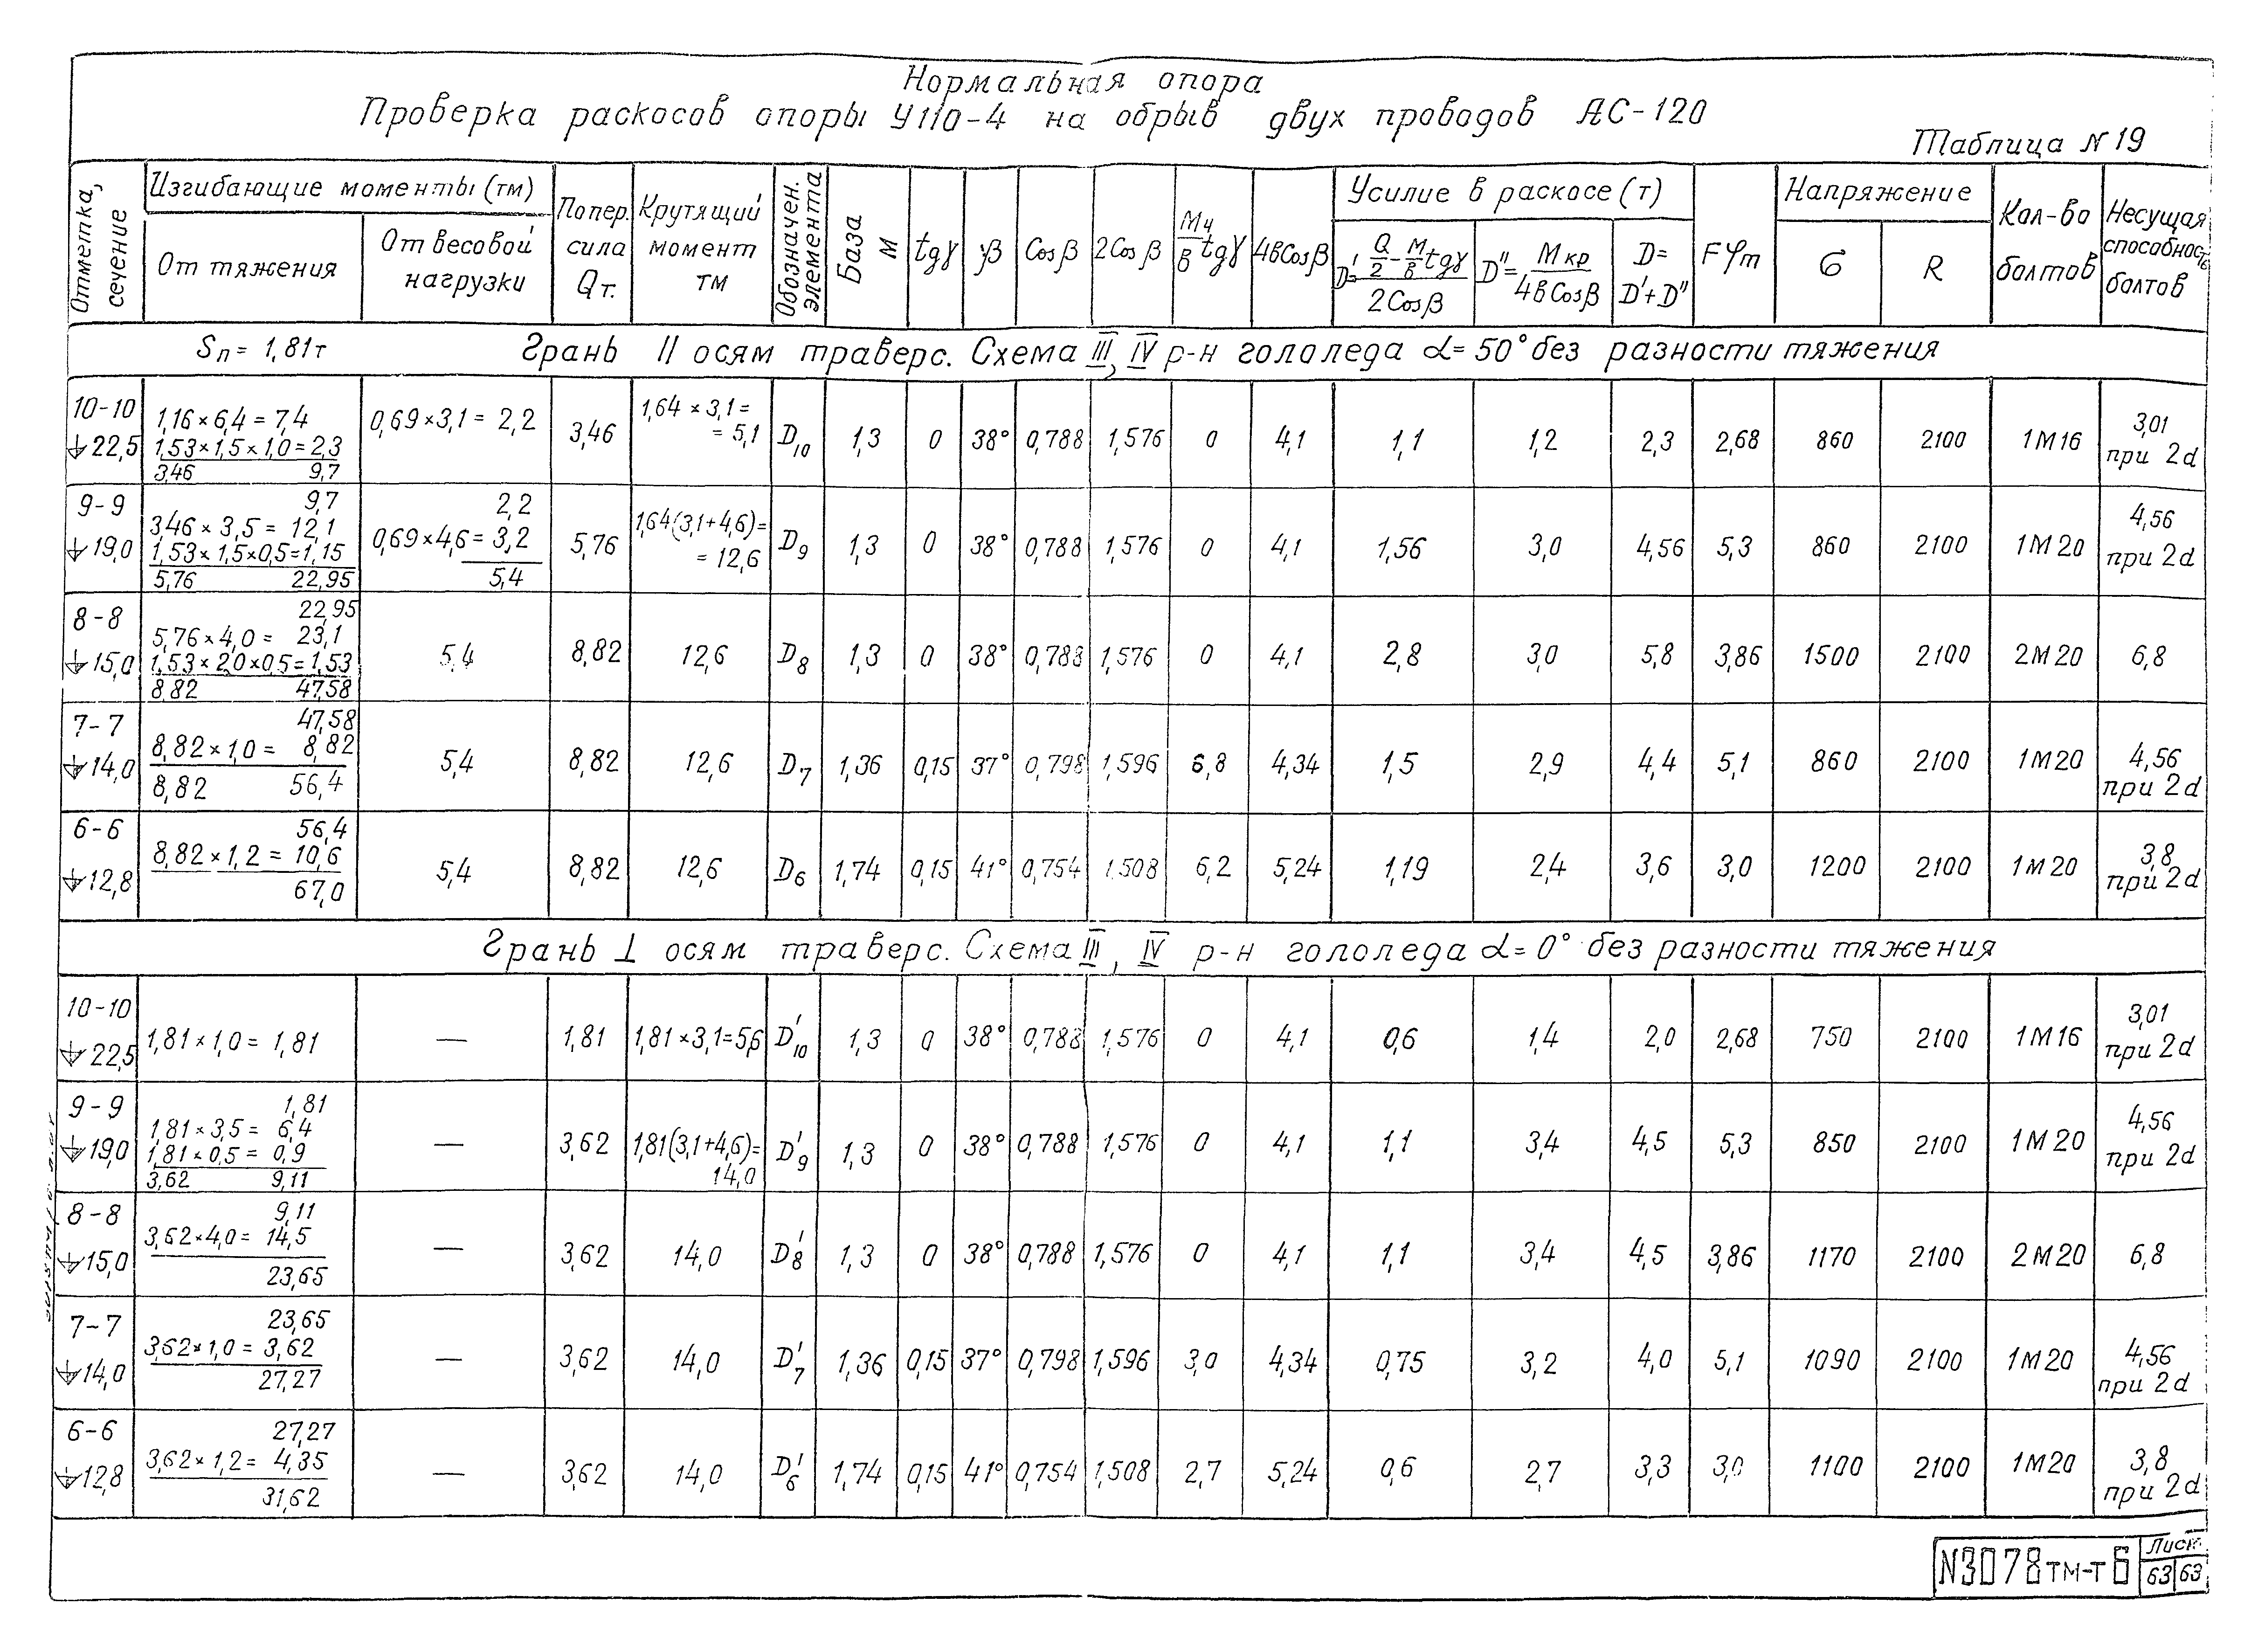 Нормальная опора
Проверка раскосов опоры У110-4 на обрыв двух проводов АС-120
Таблица N 19
Отметка, сечение | Изгибающие моменты (тм) | Попер. сила Qт. | Крутящий момент тм | Обозначен. элемента | База м | tgγ | β | Cosβ | 2Cosβ | Mч/в tgγ | 4вCosβ | Усилие в раскосе (т) | Fφm | Напряжение | Кол-во болтов | Несущая способность болтов
От тяжения | От весовой нагрузки | D'= Q/2 - M/в tgγ / 2Cosβ | D''= Mкр / 4вCosβ | D= D'+D'' | σ | R
Sп = 1,81т Грань II осям траверс. Схема III, IV р-н гололеда α=50° без разности тяжения
10-10 22,5 | 1,16×6,4=7,4 1,53×1,5×1,0=2,3 3,46 9,7 | 0,69×3,1= 2,2 | 3,46 | 1,64×3,1= =5,1 | D10 | 1,3 | 0 | 38° | 0,788 | 1,576 | 0 | 4,1 | 1,1 | 1,2 | 2,3 | 2,68 | 860 | 2100 | 1М16 | 3,01 при 2d
9-9 19,0 | 9,7 3,46×3,5= 12,1 1,53×1,5×0,5=1,15 5,76 22,95 | 2,2 0,69×4,6= 3,2 5,4 | 5,76 | 1,64(3,1+4,6)= =12,6 | D9 | 1,3 | 0 | 38° | 0,788 | 1,576 | 0 | 4,1 | 1,56 | 3,0 | 4,56 | 5,3 | 860 | 2100 | 1М20 | 4,56 при 2d
8-8 15,0 | 22,95 5,76×4,0= 23,1 1,53×2,0×0,5=1,53 8,82 47,58 | 5,4 | 8,82 | 12,6 | D8 | 1,3 | 0 | 38° | 0,788 | 1,576 | 0 | 4,1 | 2,8 | 3,0 | 5,8 | 3,86 | 1500 | 2100 | 2М20 | 6,8
7-7 14,0 | 47,58 8,82×1,0= 8,82 8,82 56,4 | 5,4 | 8,82 | 12,6 | D7 | 1,36 | 0,15 | 37° | 0,798 | 1,596 | 6,8 | 4,34 | 1,5 | 2,9 | 4,4 | 5,1 | 860 | 2100 | 1М20 | 4,56 при 2d
6-6 12,8 | 56,4 8,82×1,2= 10,6 67,0 | 5,4 | 8,82 | 12,6 | D6 | 1,74 | 0,15 | 41° | 0,754 | 1,508 | 6,2 | 5,24 | 1,19 | 2,4 | 3,6 | 3,0 | 1200 | 2100 | 1М20 | 3,8 при 2d
Грань ⊥ осям траверс. Схема III, IV р-н гололеда α=0° без разности тяжения
10-10 22,5 | 1,81×1,0= 1,81 | — | 1,81 | 1,81×3,1=5,6 | D'10 | 1,3 | 0 | 38° | 0,788 | 1,576 | 0 | 4,1 | 0,6 | 1,4 | 2,0 | 2,68 | 750 | 2100 | 1М16 | 3,01 при 2d
9-9 19,0 | 1,81 1,81×3,5= 6,4 1,81×0,5= 0,9 3,62 9,11 | — | 3,62 | 1,81(3,1+4,6)= 14,0 | D'9 | 1,3 | 0 | 38° | 0,788 | 1,576 | 0 | 4,1 | 1,1 | 3,4 | 4,5 | 5,3 | 850 | 2100 | 1М20 | 4,56 при 2d
8-8 15,0 | 9,11 3,62×4,0= 14,5 23,65 | — | 3,62 | 14,0 | D'8 | 1,3 | 0 | 38° | 0,788 | 1,576 | 0 | 4,1 | 1,1 | 3,4 | 4,5 | 3,86 | 1170 | 2100 | 2М20 | 6,8
7-7 14,0 | 23,65 3,62×1,0= 3,62 27,27 | — | 3,62 | 14,0 | D'7 | 1,36 | 0,15 | 37° | 0,798 | 1,596 | 3,0 | 4,34 | 0,75 | 3,2 | 4,0 | 5,1 | 1090 | 2100 | 1М20 | 4,56 при 2d
6-6 12,8 | 27,27 3,62×1,2= 4,35 31,62 | — | 3,62 | 14,0 | D'6 | 1,74 | 0,15 | 41° | 0,754 | 1,508 | 2,7 | 5,24 | 0,6 | 2,7 | 3,3 | 3,0 | 1100 | 2100 | 1М20 | 3,8 при 2d
N3078тм-т6 Лист 63 63